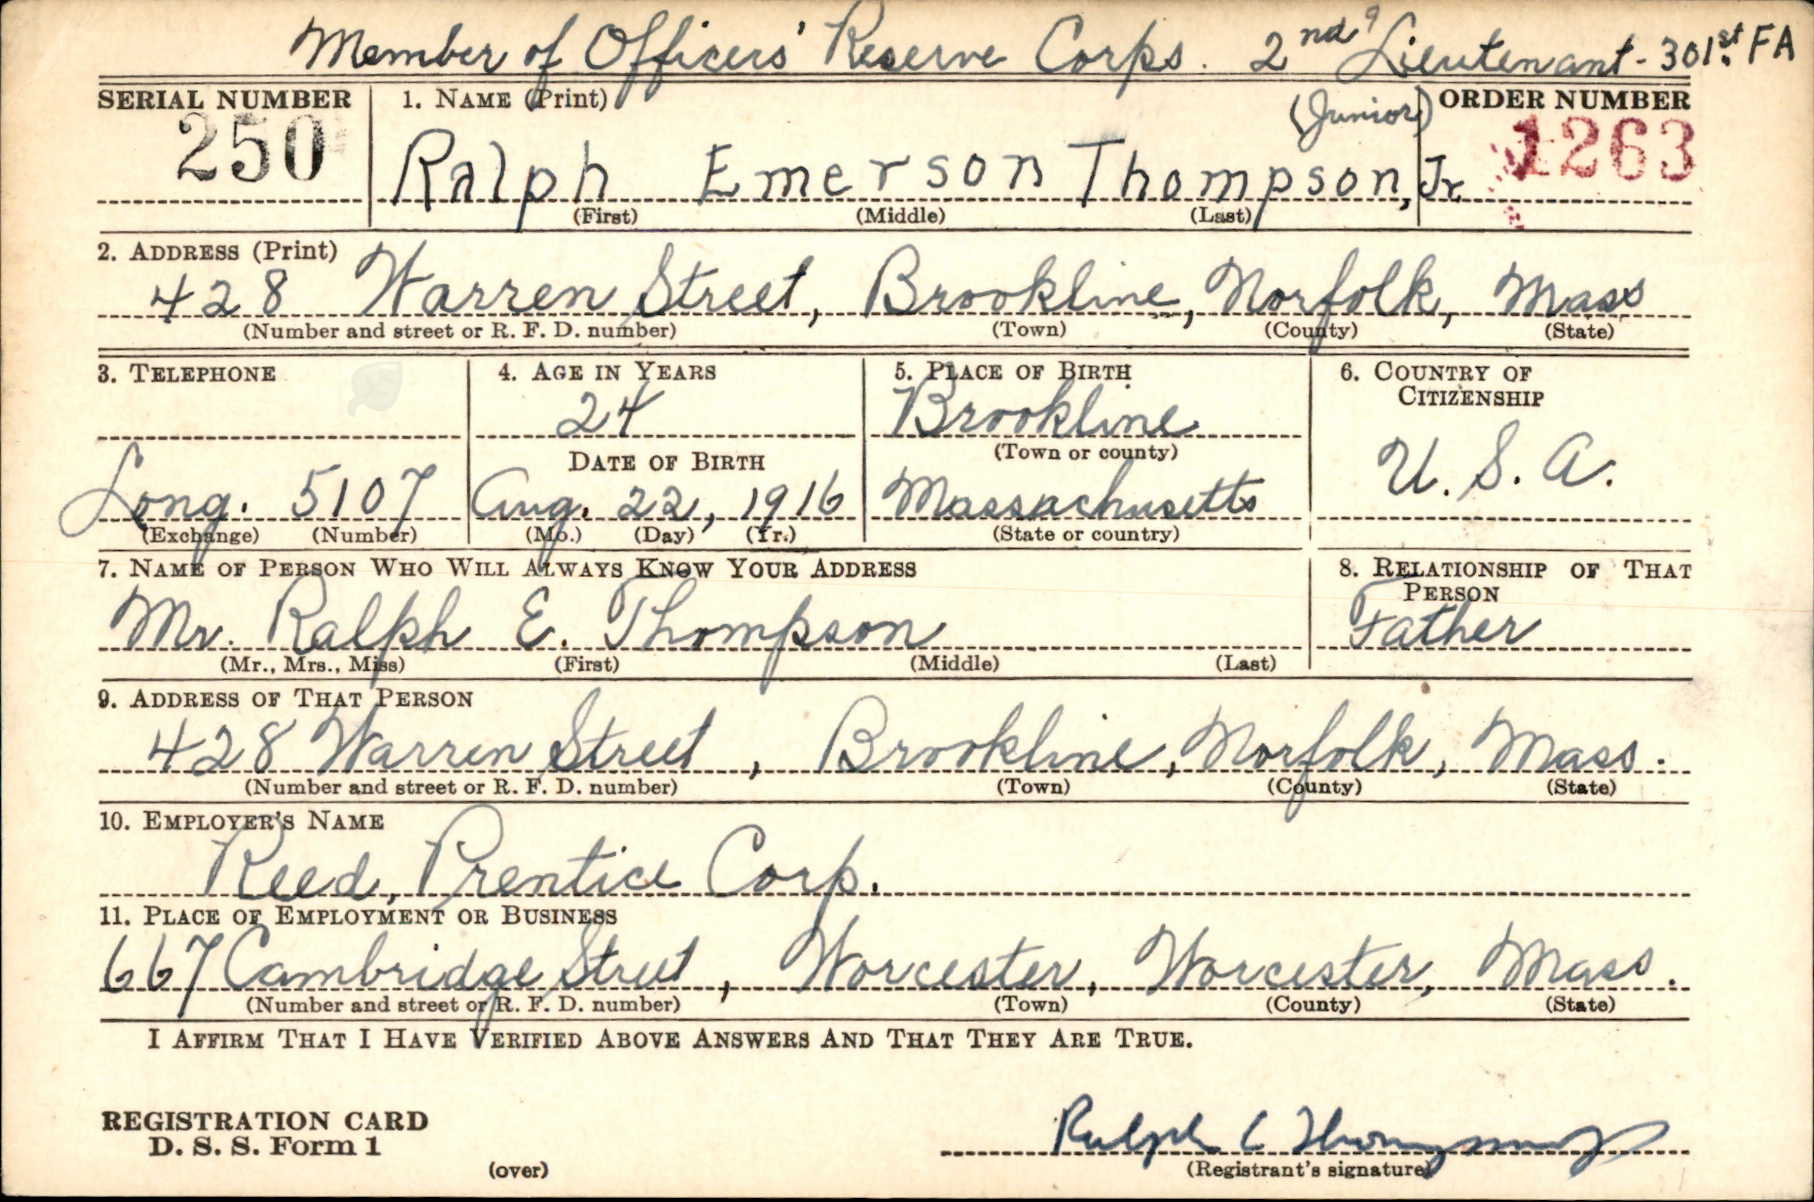 Member of Officers' Reserve Corps. 2nd Lieutenant - 301st. FA
SERIAL NUMBER
250
1. NAME (Print)
(Junior)
ORDER NUMBER
1263
Ralph Emerson Thompson, Jr.
(First) (Middle) (Last)
2. ADDRESS (Print)
428 Warren Street, Brookline, Norfolk, Mass
(Number and street or R. F. D. number) (Town) (County) (State)
3. TELEPHONE
Long. 5107
(Exchange) (Number)
4. AGE IN YEARS
24
DATE OF BIRTH
Aug. 22, 1916
(Mo.) (Day) (Yr.)
5. PLACE OF BIRTH
Brookline
(Town or county)
Massachusetts
(State or country)
6. COUNTRY OF
CITIZENSHIP
U. S. A.
7. NAME OF PERSON WHO WILL ALWAYS KNOW YOUR ADDRESS
Mr. Ralph E. Thompson
(Mr., Mrs., Miss) (First) (Middle) (Last)
8. RELATIONSHIP OF THAT
PERSON
Father
9. ADDRESS OF THAT PERSON
428 Warren Street, Brookline, Norfolk, Mass.
(Number and street or R. F. D. number) (Town) (County) (State)
10. EMPLOYER'S NAME
Reed, Prentice Corp.
11. PLACE OF EMPLOYMENT OR BUSINESS
667 Cambridge Street, Worcester, Worcester, Mass.
(Number and street or R. F. D. number) (Town) (County) (State)
I AFFIRM THAT I HAVE VERIFIED ABOVE ANSWERS AND THAT THEY ARE TRUE.
REGISTRATION CARD
D. S. S. Form 1
(over)
Ralph E Thompson Jr
(Registrant's signature)